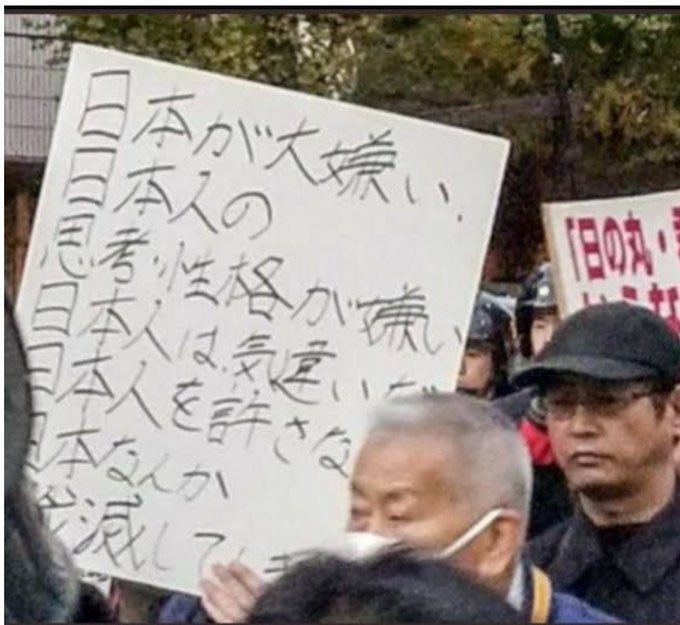 日本が大嫌い.
日本人の
思考.性格が嫌い
日本人は気違いだ
日本人を許さな
日本なんか
滅して
「日の丸・